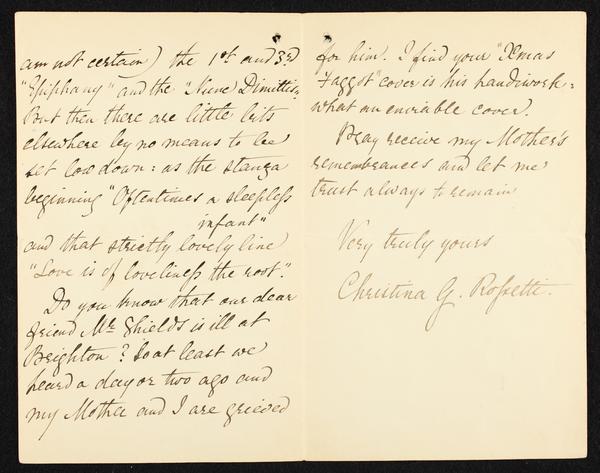 am not certain) the 1st and 3rd
"Epiphany" and the "Nunc Dimittis."
But then there are little bits
elsewhere by no means to be
set low down: as the stanza
beginning "Oftentimes a sleepless
infant"
and that strictly lovely line
"Love is of loveliness the root."
Do you know that our dear
friend Mr. Shields is ill at
Brighton? So at least we
heard a day or two ago and
my Mother and I are grieved
for him. I find your "Xmas
Faggot" cover is his handiwork:
what an enviable cover.
Pray receive my Mother's
remembrances and let me
trust always to remain
Very truly yours
Christina G. Rossetti.